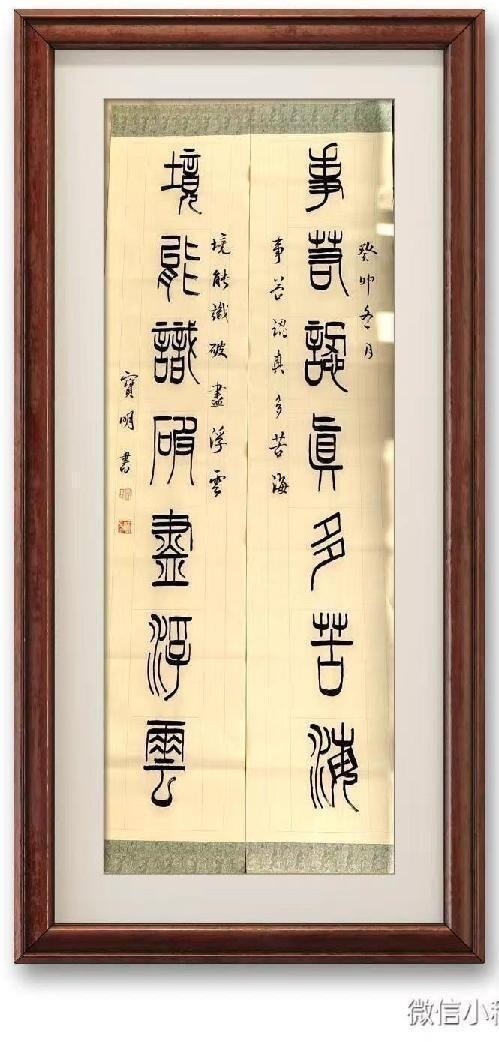 癸卯冬月
事若認眞多苦海
事若認真多苦海
境能識破盡浮雲
境能識破盡浮雲
寶明書
微信小